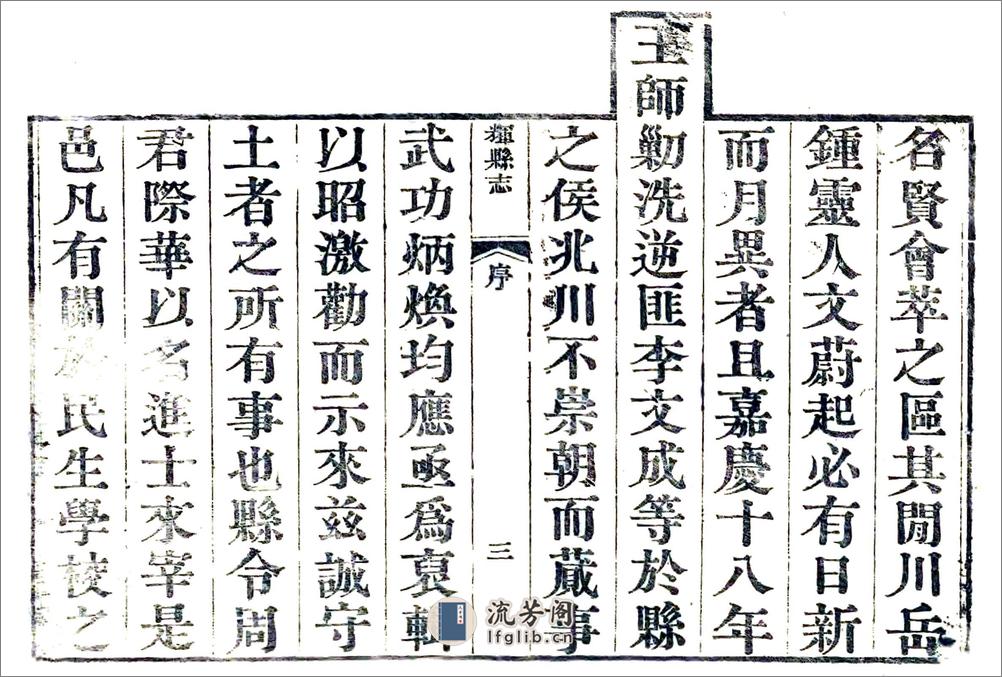 名賢會萃之區其閒川岳
鍾靈人文蔚起必有日新
而月異者且嘉慶十八年
王師勦洗逆匪李文成等於縣
之侯兆川不崇朝而蕆事
輝縣志
序
三
武功炳煥均應亟爲裒輯
以昭激勸而示來兹誠守
土者之所有事也縣令周
君際華以名進士來宰是
邑凡有關於民生學校之
流芳阁
lfglib.cn